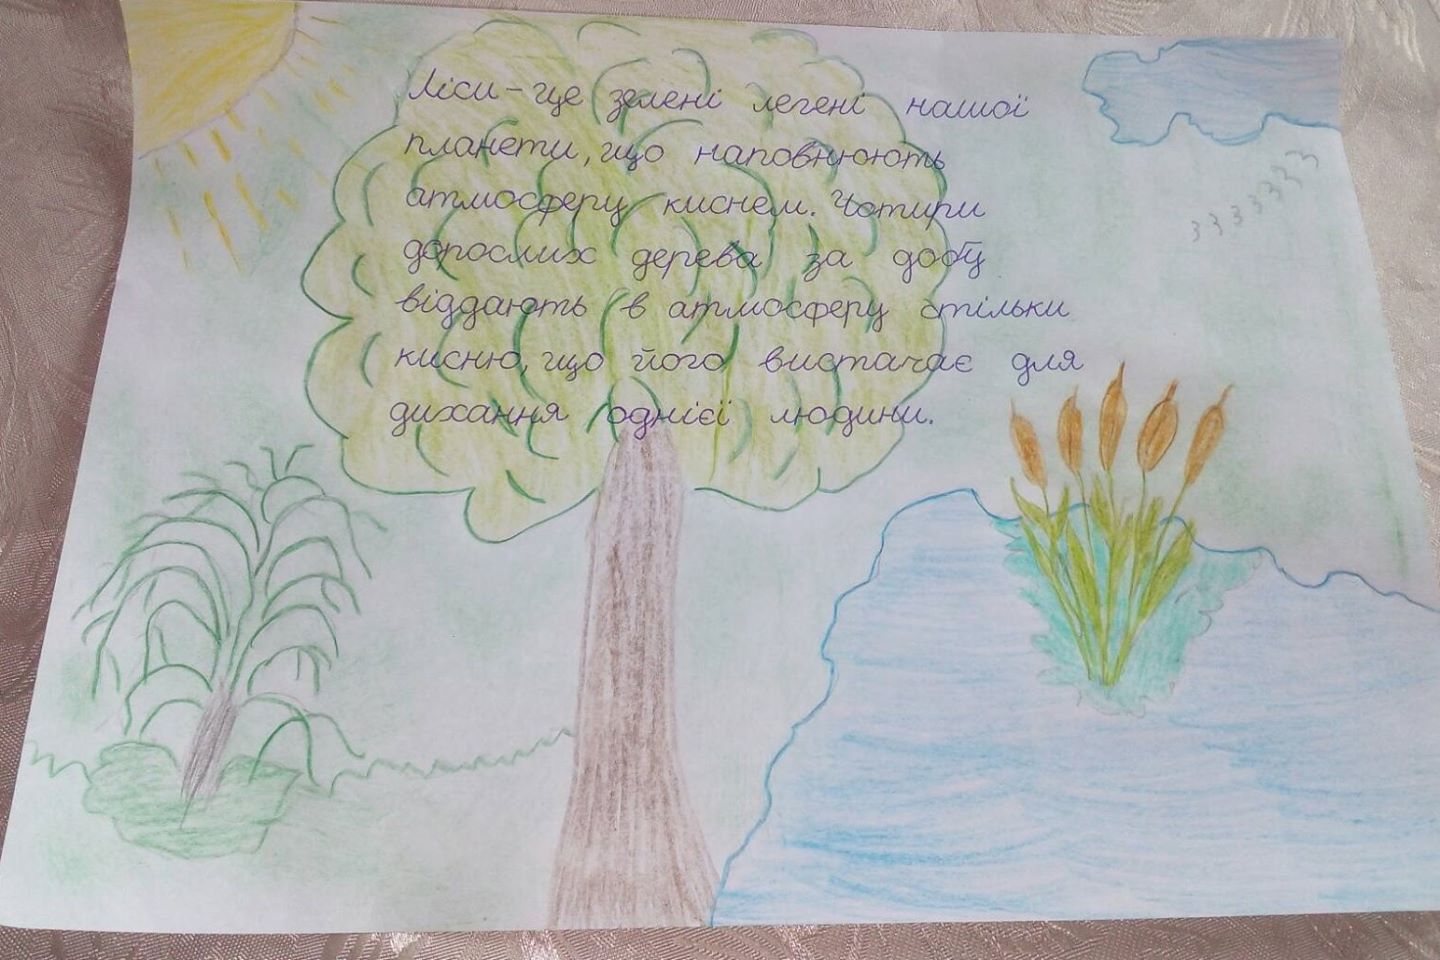 Ліси – це зелені легені нашої
планети, що наповнюють
атмосферу киснем. Чотири
дорослих дерева за добу
віддають в атмосферу стільки
кисню, що його вистачає для
дихання однієї людини.